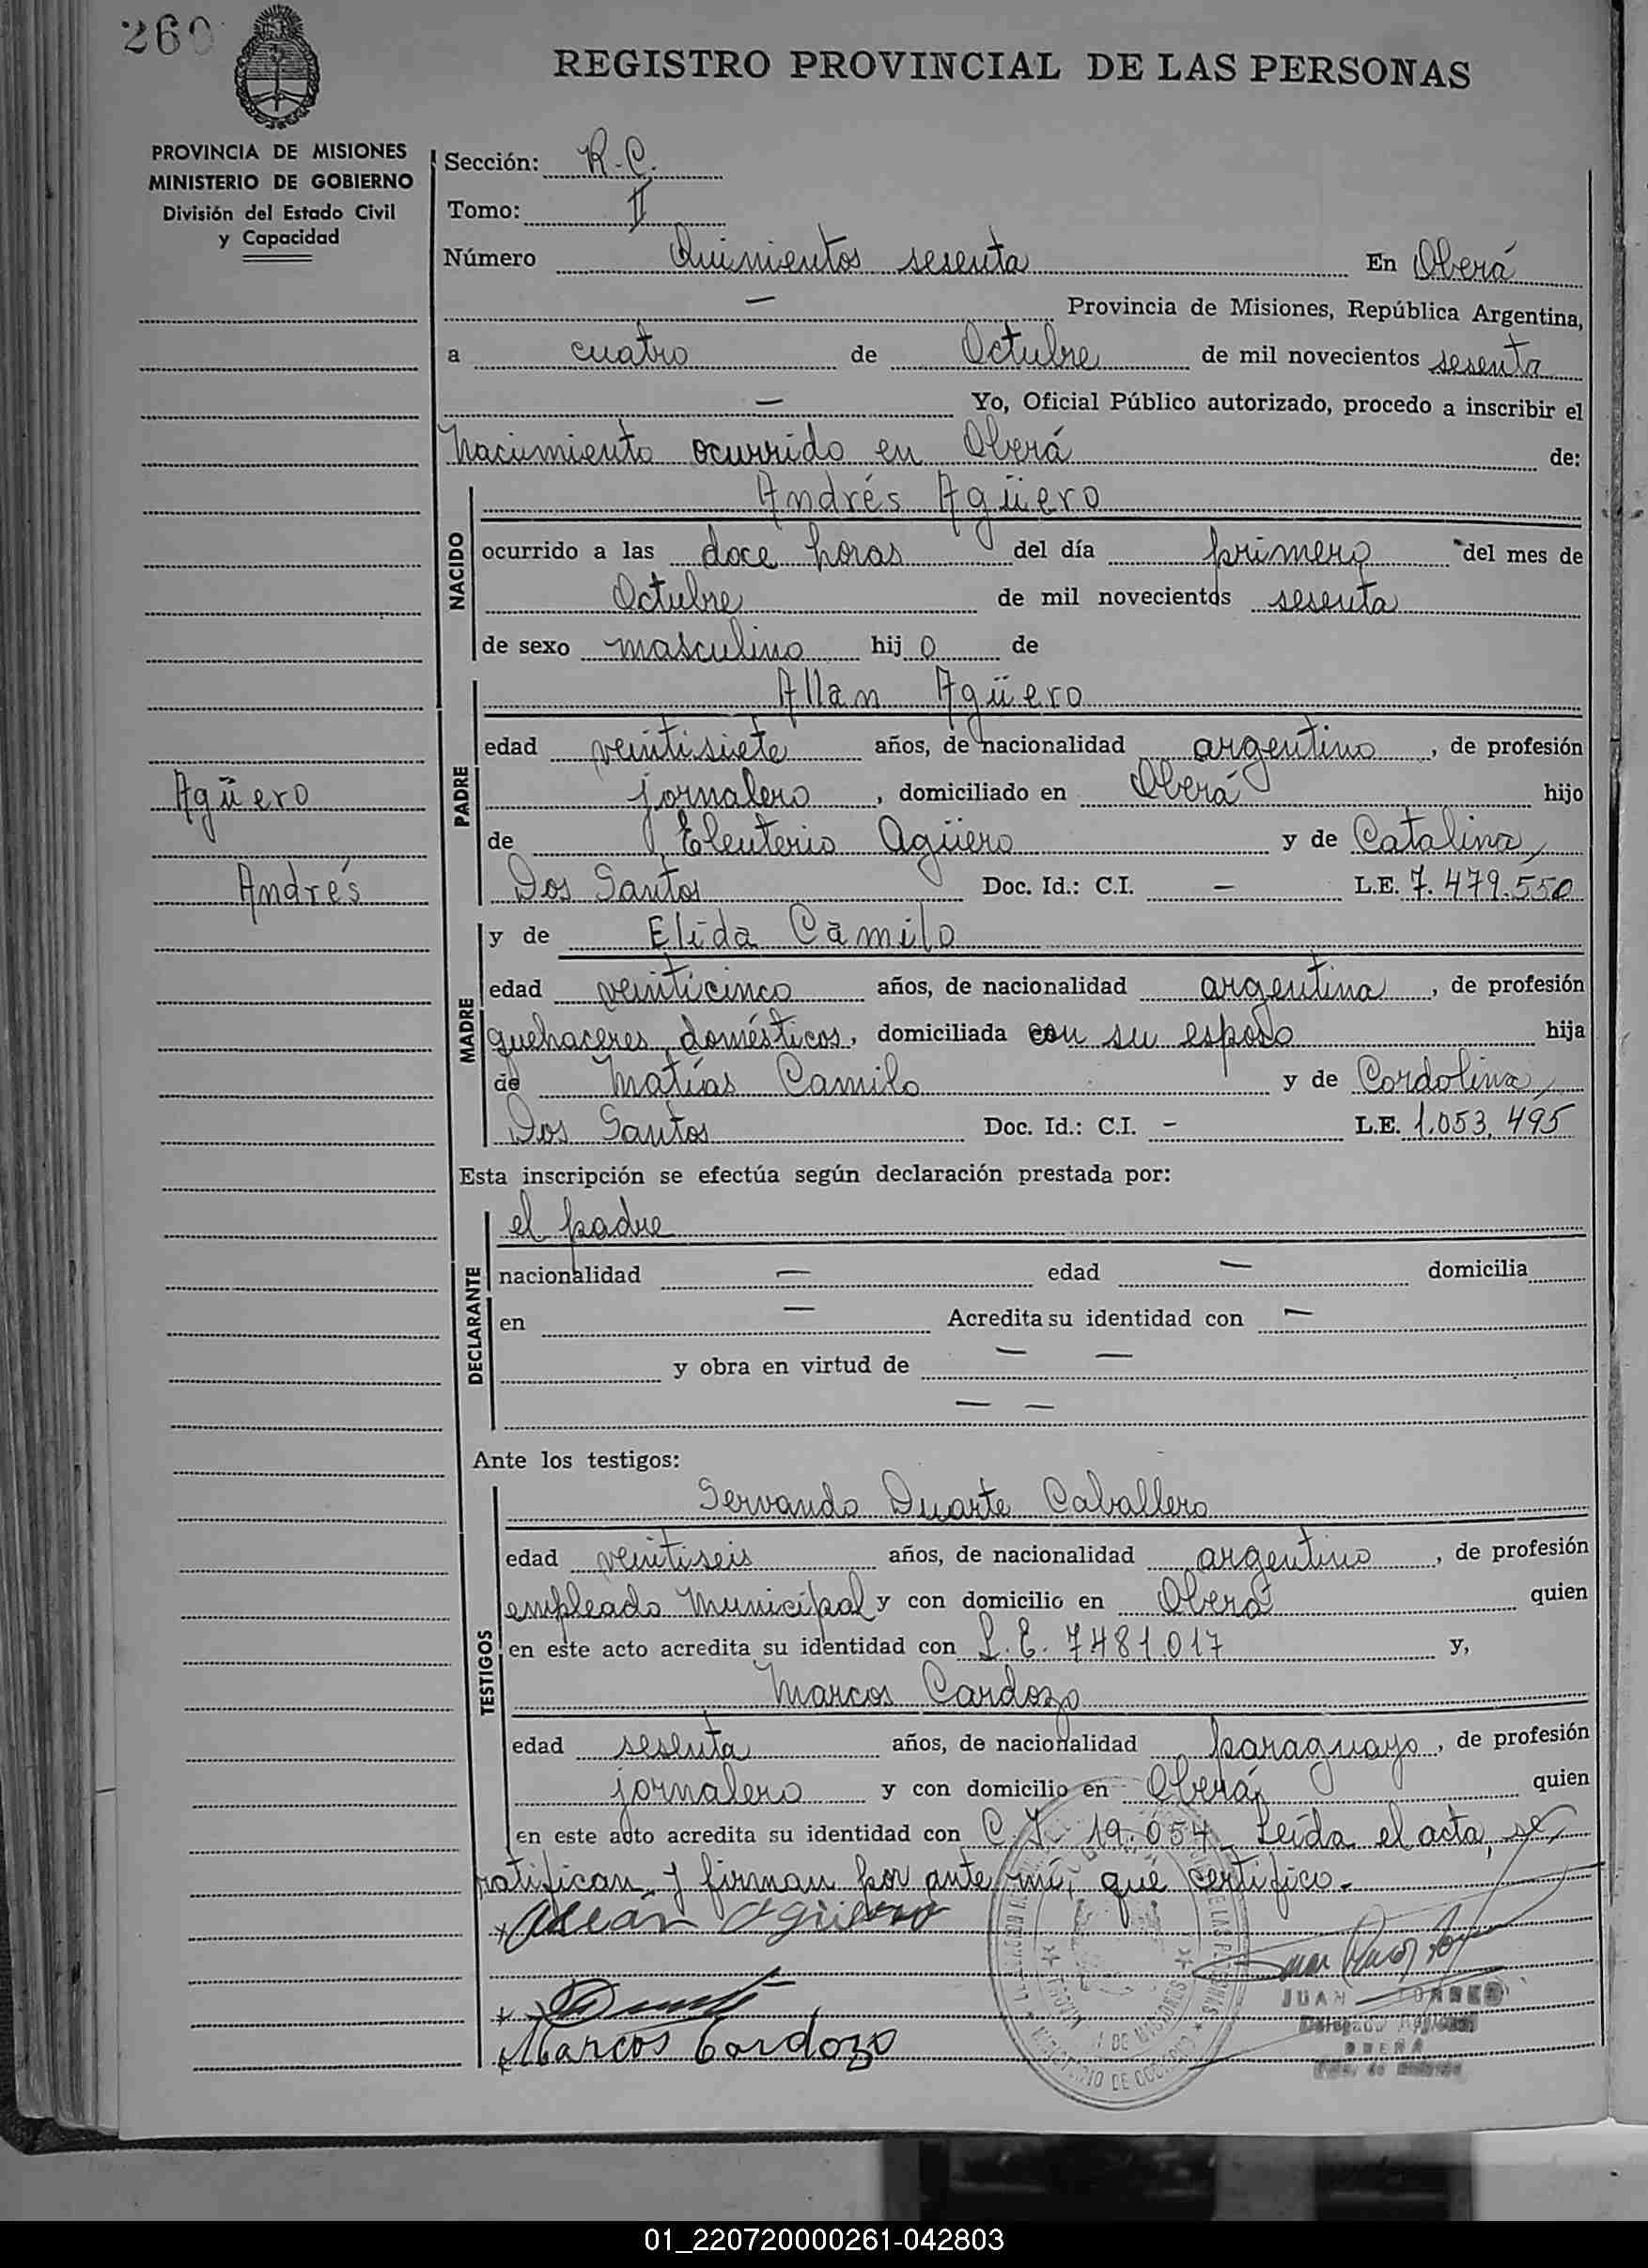 260
REGISTRO PROVINCIAL DE LAS PERSONAS
PROVINCIA DE MISIONES
MINISTERIO DE GOBIERNO
División del Estado Civil
y Capacidad
Sección: R.C.
Tomo: II
Número Quinientos sesenta En Oberá
— Provincia de Misiones, República Argentina,
a cuatro de Octubre de mil novecientos sesenta
— Yo, Oficial Público autorizado, procedo a inscribir el
Nacimiento ocurrido en Oberá de:
NACIDO
Andrés Agüero
ocurrido a las doce horas del día primero del mes de
Octubre de mil novecientos sesenta
de sexo masculino hijo de
PADRE
Allan Agüero
edad veintisiete años, de nacionalidad argentino, de profesión
jornalero, domiciliado en Oberá hijo
de Eleuterio Agüero y de Catalina
Dos Santos Doc. Id.: C.I. — L.E. 7.479.550
Agüero
Andrés
MADRE
y de Elida Camilo
edad veinticinco años, de nacionalidad argentina, de profesión
quehaceres domésticos, domiciliada con su esposo hija
de Matías Camilo y de Cordolina
Dos Santos Doc. Id.: C.I. - L.E. 1.053.495
Esta inscripción se efectúa según declaración prestada por:
DECLARANTE
el padre
nacionalidad — edad — domicilia
en — Acredita su identidad con —
y obra en virtud de — —
— —
Ante los testigos:
TESTIGOS
Servando Duarte Caballero
edad veintiseis años, de nacionalidad argentino, de profesión
empleado Municipal y con domicilio en Oberá quien
en este acto acredita su identidad con L.E. 7481.017 y,
Marcos Cardozo
edad sesenta años, de nacionalidad paraguayo, de profesión
jornalero y con domicilio en Oberá quien
en este acto acredita su identidad con C.I. 19.054 Leída el acta, se
ratifican y firman por ante mí, qué certifico.-
Allan Agüero
JUAN TORRES
Delegado
OBERA
MINISTERIO DE GOBIERNO
DE MISIONES
Marcos Cardozo
01_220720000261-042803